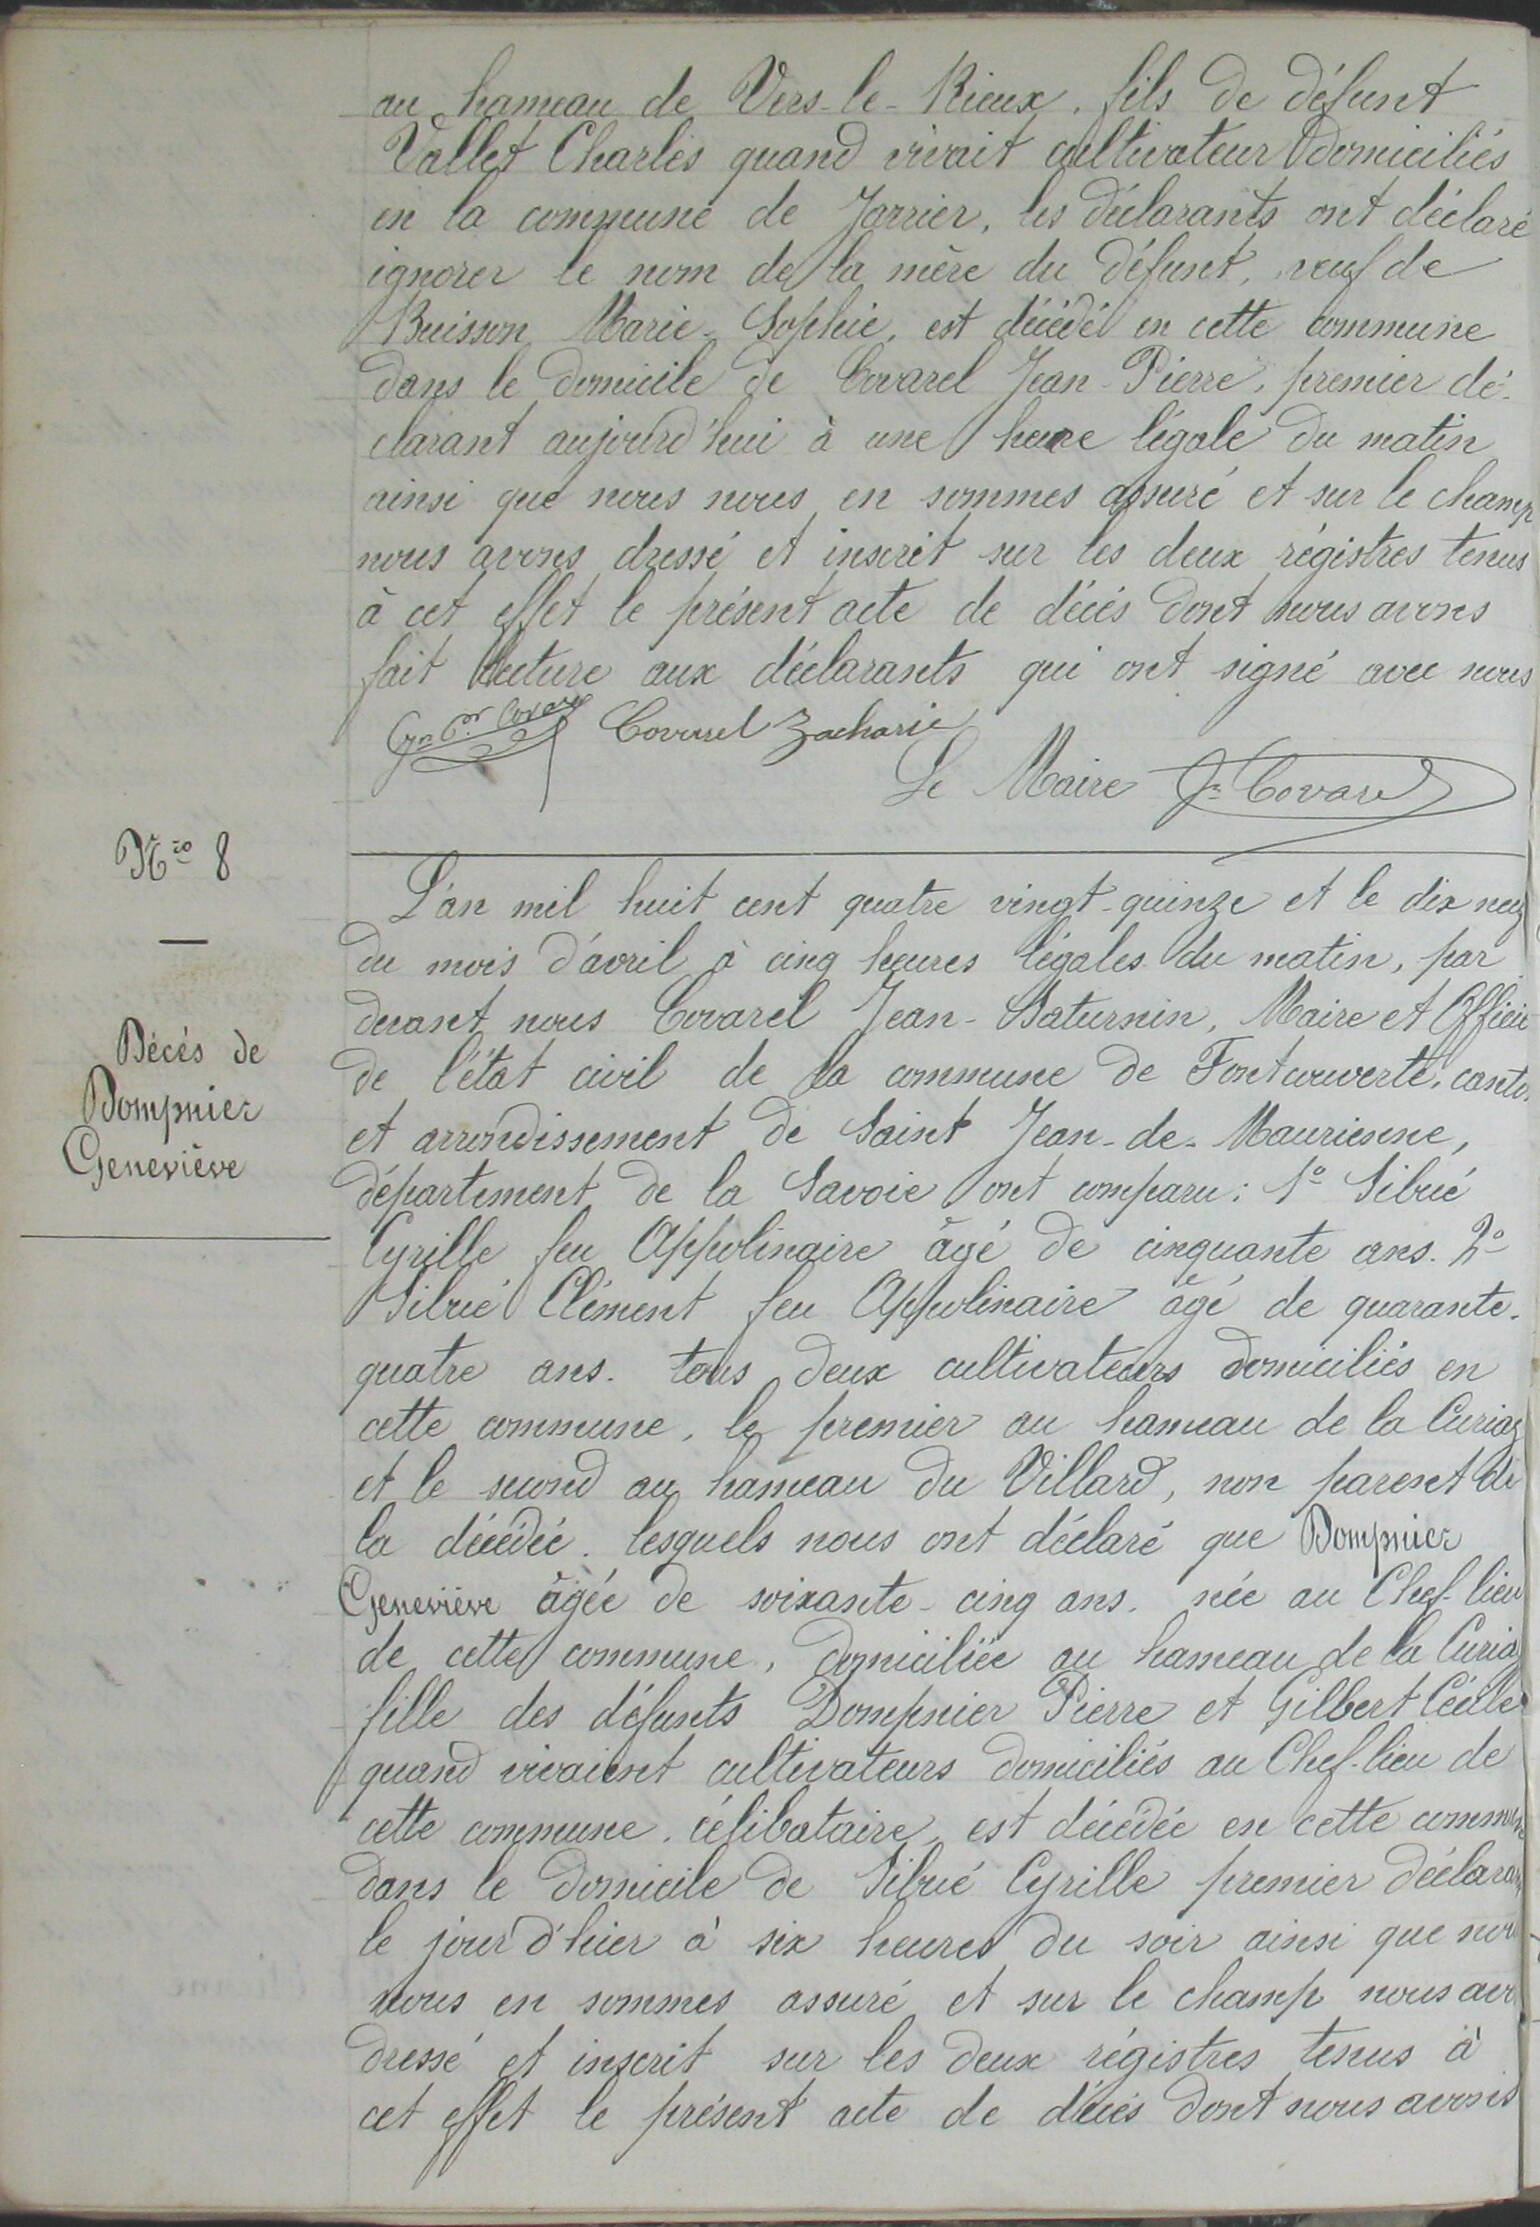 au hameau de Vers-le-Rieux, fils de défunt
Vallet Charles quand vivait cultivateur domiciliés
en la commune de Jarrier, les déclarants ont déclaré
ignorer le nom de la mère du défunt, veuf de
Buisson Marie-Sophie, est décédé en cette commune
dans le domicile de Covarel Jean-Pierre, premier dé-
clarant aujourd'hui à une heure légale du matin
ainsi que nous nous en sommes assuré et sur le champ
nous avons dressé et inscrit sur les deux régistres tenus
à cet effet le présent acte de décès dont nous avons
fait lecture aux déclarants qui ont signé avec nous
Jn Pr Covarel Covarel Zacharie
Le Maire Jn Covarel
Nro 8
Décés de
Dompnier
Geneviève
L'an mil huit cent quatre vingt-quinze et le dix neuf
du mois d'avril à cinq heures légales du matin, par
devant nous Covarel Jean-Saturnin, Maire et Officier
de l'état civil de la commune de Fontcouverte, canton
et arrondissement de Saint Jean-de-Maurienne,
département de la Savoie ont comparu: 1º Sibué
Cyrille feu Appolinaire âgé de cinquante ans. 2º
Sibué Clément feu Appolinaire âgé de quarante-
quatre ans. tous deux cultivateurs domiciliés en
cette commune, le premier au hameau de la Curiaz
et le second au hameau du Villard, non parent de
la décédée. lesquels nous ont déclaré que Dompnier
Geneviève âgée de soixante-cinq ans. née au Chef-lieu
de cette commune, domiciliée au hameau de la Curiaz
fille des défunts Dompnier Pierre et Gilbert Cécile
quand vivaient cultivateurs domiciliés au Chef-lieu de
cette commune. célibataire, est décédée en cette commune
dans le domicile de Sibué Cyrille premier déclarant
le jour d'hier à six heures du soir ainsi que nous
nous en sommes assuré et sur le champ nous avons
dressé et inscrit sur les deux régistres tenus à
cet effet le présent acte de décès dont nous avons